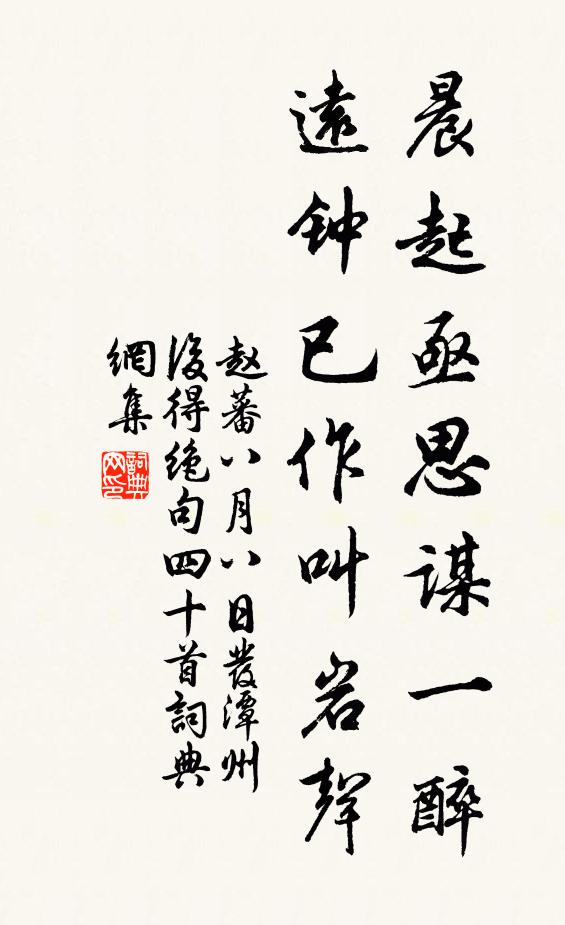 晨起亟思謀一醉
遠钟已作叫岩聲
赵蕃八月八日發潭州
後得绝句四十首詞典
網集
詞典
网印